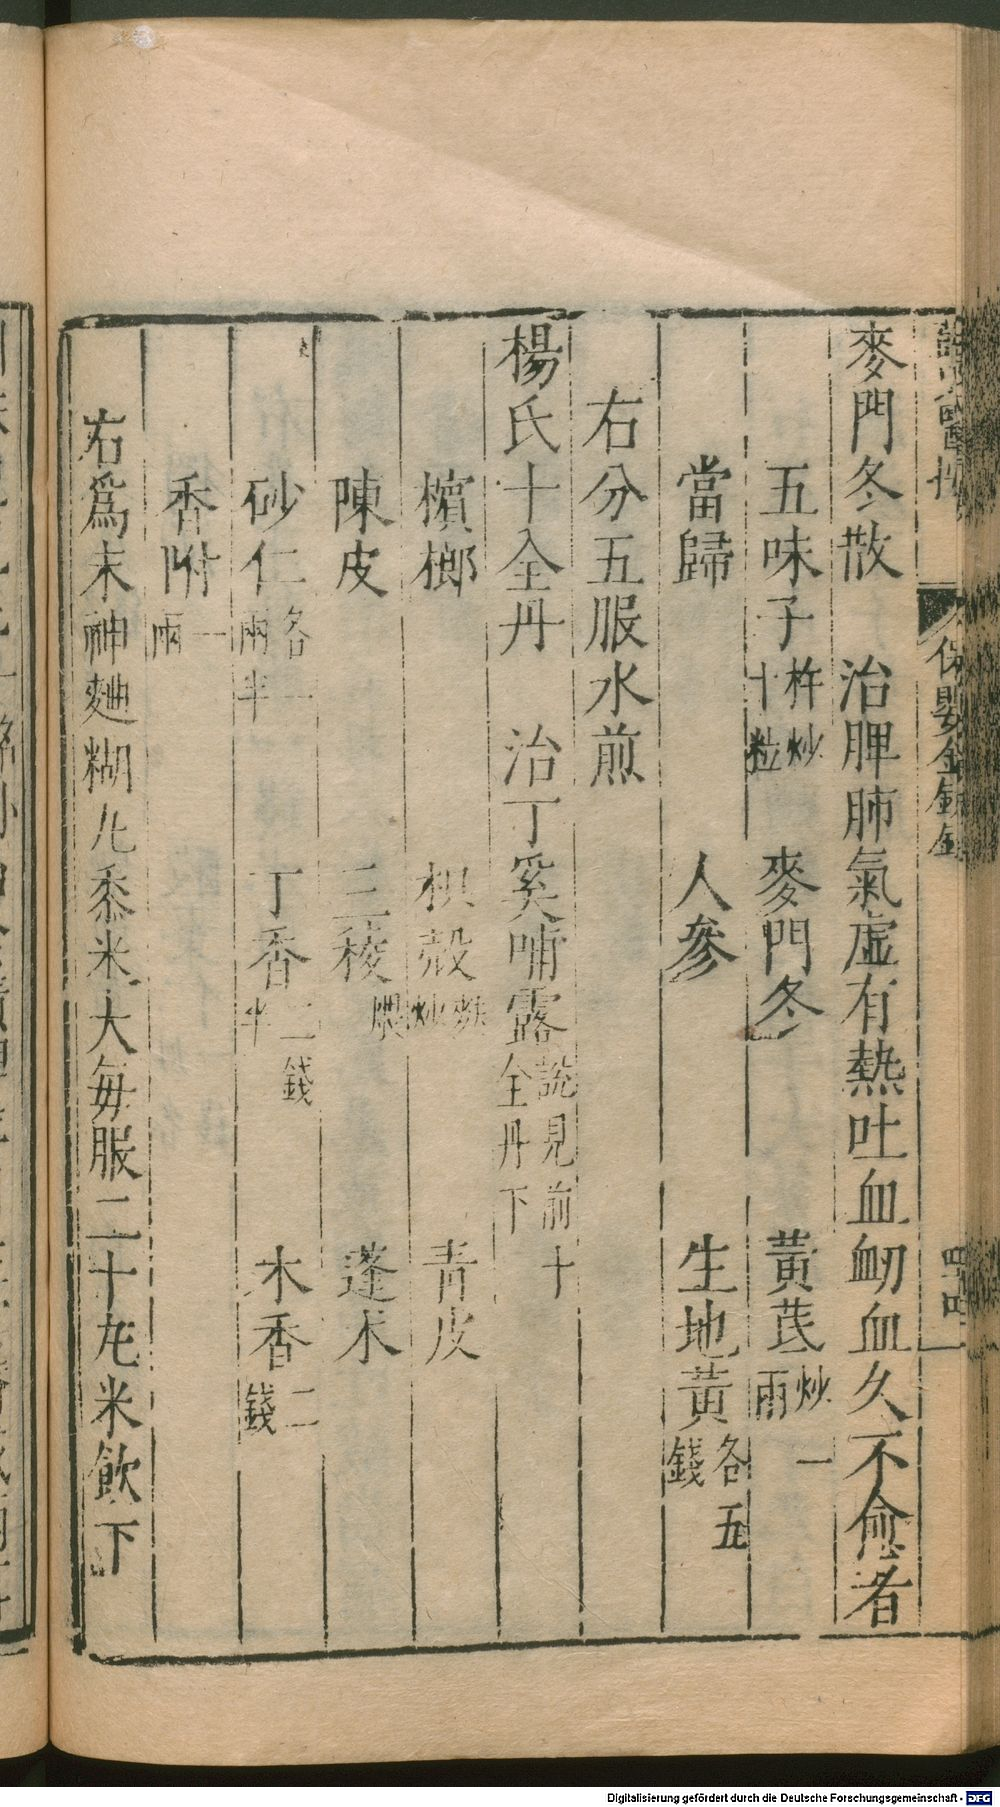 保嬰金鏡錄
麥門冬散 治脾肺氣虛有熱吐血衂血久不愈者
五味子杵炒十粒 麥門冬 黃芪炒一兩
當歸 人參 生地黃各五錢
右分五服水煎
楊氏十全丹 治丁奚哺露說見前十全丹下
檳榔 枳殼麩炒 青皮
陳皮 三稜煨 蓬朮
砂仁各一兩半 丁香二錢半 木香二錢
香附一兩
右爲末神麯糊丸黍米大每服二十丸米飲下
Digitalisierung gefördert durch die Deutsche Forschungsgemeinschaft - DFG